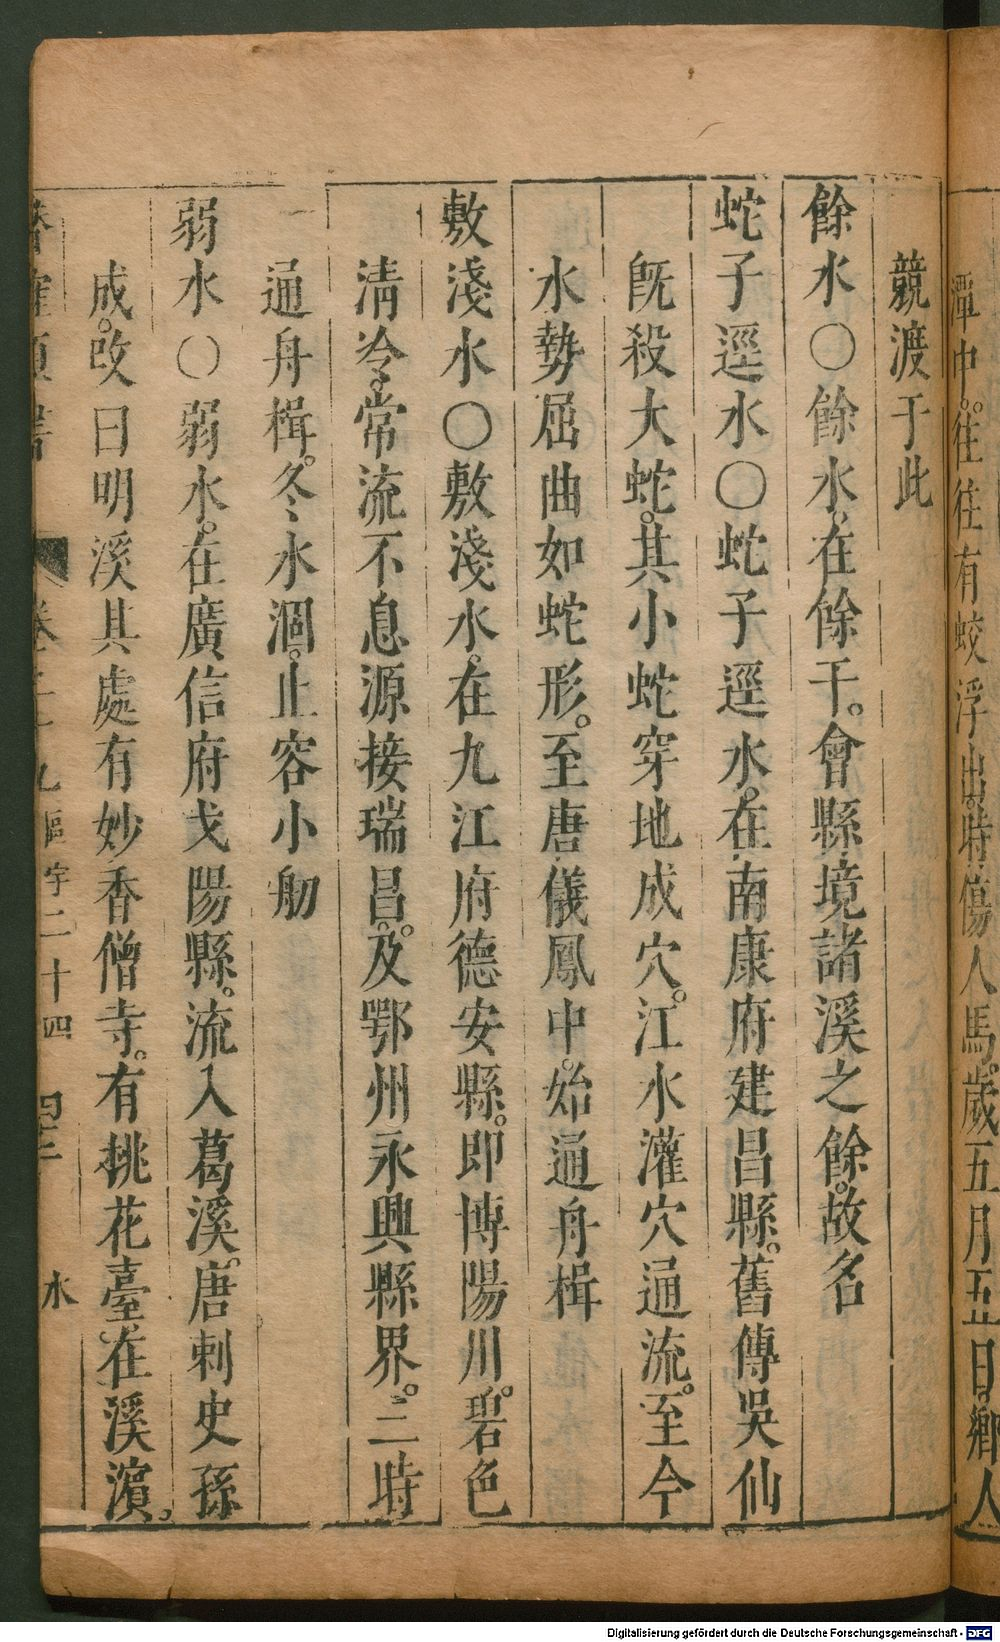 潭中。往往有蛟浮出。時傷人馬。歲五月五日。鄉人
競渡于此
餘水〇餘水。在餘干。會縣境諸溪之餘。故名
蛇子逕水〇蛇子逕水。在南康府建昌縣。舊傳吳仙
旣殺大蛇。其小蛇穿地成穴。江水灌穴通流。至今
水勢屈曲如蛇形。至唐儀鳳中。始通舟楫
敷淺水〇敷淺水。在九江府德安縣。卽博陽川。碧色
清冷。常流不息源接瑞昌。及鄂州永興縣界。三時
通舟楫。冬水涸。止容小舠
弱水〇弱水。在廣信府弋陽縣。流入葛溪。唐刺史孫
成。改曰明溪其處有妙香僧寺。有桃花臺。在溪濱。
卷二十九區宇二十四 四三 水
Digitalisierung gefördert durch die Deutsche Forschungsgemeinschaft - DFG